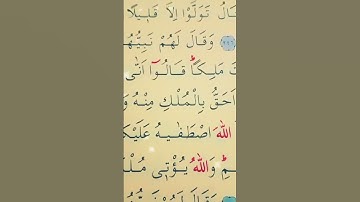 تَالُ تَوَلَّوْا اِلَّا قَلٖيلًا
وَقَالَ لَهُمْ نَبِيُّهُ
تَ مَلِكًا قَالُٓوا اَنّٰى
اَحَقُّ بِالْمُلْكِ مِنْهُ وَ
اللّٰهَ اصْطَفٰيهُ عَلَيْكُ
مِ وَاللّٰهُ يُؤْتٖى مُلْ
وَقَالَ لَهُمْ